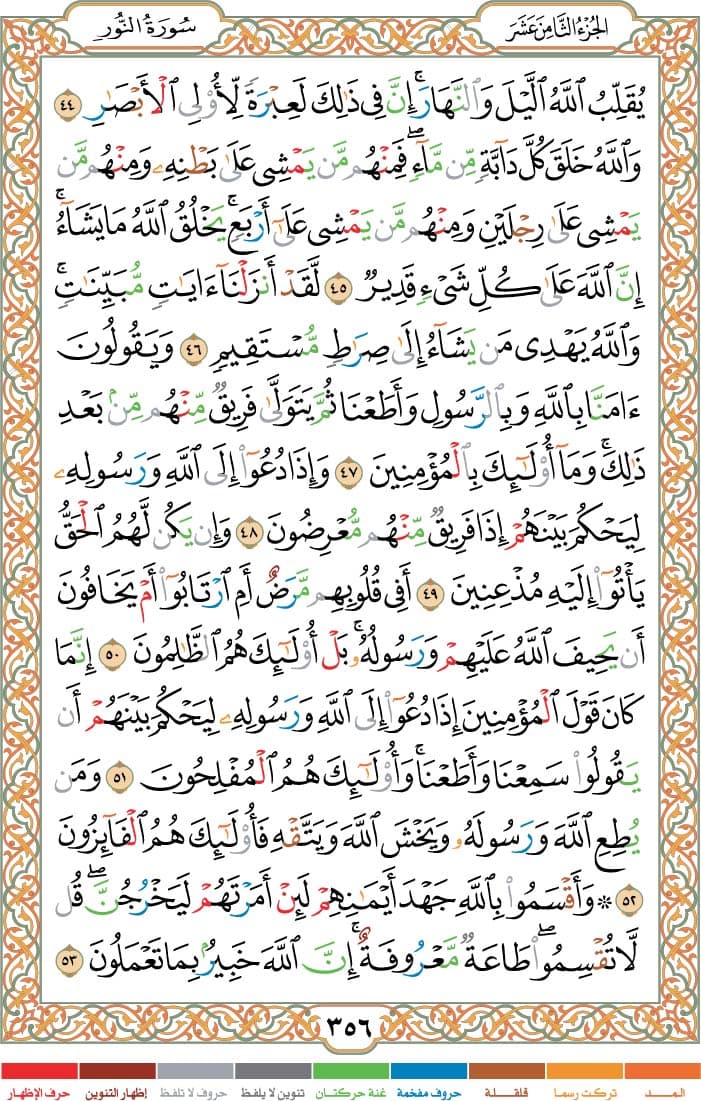 الجزء الثامن عشر
سورة النور
يُقَلِّبُ ٱللَّهُ ٱلَّيْلَ وَٱلنَّهَارَ ۚ إِنَّ فِى ذَٰلِكَ لَعِبْرَةً لِّأُو۟لِى ٱلْأَبْصَٰرِ ٤٤
وَٱللَّهُ خَلَقَ كُلَّ دَآبَّةٍ مِّن مَّآءٍ ۖ فَمِنْهُم مَّن يَمْشِى عَلَىٰ بَطْنِهِۦ وَمِنْهُم مَّن
يَمْشِى عَلَىٰ رِجْلَيْنِ وَمِنْهُم مَّن يَمْشِى عَلَىٰٓ أَرْبَعٍ ۚ يَخْلُقُ ٱللَّهُ مَا يَشَآءُ ۚ
إِنَّ ٱللَّهَ عَلَىٰ كُلِّ شَىْءٍ قَدِيرٌ ٤٥ لَّقَدْ أَنزَلْنَآ ءَايَٰتٍ مُّبَيِّنَٰتٍ ۚ
وَٱللَّهُ يَهْدِى مَن يَشَآءُ إِلَىٰ صِرَٰطٍ مُّسْتَقِيمٍ ٤٦ وَيَقُولُونَ
ءَامَنَّا بِٱللَّهِ وَبِٱلرَّسُولِ وَأَطَعْنَا ثُمَّ يَتَوَلَّىٰ فَرِيقٌ مِّنْهُم مِّنۢ بَعْدِ
ذَٰلِكَ ۚ وَمَآ أُو۟لَٰٓئِكَ بِٱلْمُؤْمِنِينَ ٤٧ وَإِذَا دُعُوٓا۟ إِلَى ٱللَّهِ وَرَسُولِهِۦ
لِيَحْكُمَ بَيْنَهُمْ إِذَا فَرِيقٌ مِّنْهُم مُّعْرِضُونَ ٤٨ وَإِن يَكُن لَّهُمُ ٱلْحَقُّ
يَأْتُوٓا۟ إِلَيْهِ مُذْعِنِينَ ٤٩ أَفِى قُلُوبِهِم مَّرَضٌ أَمِ ٱرْتَابُوٓا۟ أَمْ يَخَافُونَ
أَن يَحِيفَ ٱللَّهُ عَلَيْهِمْ وَرَسُولُهُۥ ۚ بَلْ أُو۟لَٰٓئِكَ هُمُ ٱلظَّٰلِمُونَ ٥٠ إِنَّمَا
كَانَ قَوْلَ ٱلْمُؤْمِنِينَ إِذَا دُعُوٓا۟ إِلَى ٱللَّهِ وَرَسُولِهِۦ لِيَحْكُمَ بَيْنَهُمْ أَن
يَقُولُوا۟ سَمِعْنَا وَأَطَعْنَا ۚ وَأُو۟لَٰٓئِكَ هُمُ ٱلْمُفْلِحُونَ ٥١ وَمَن
يُطِعِ ٱللَّهَ وَرَسُولَهُۥ وَيَخْشَ ٱللَّهَ وَيَتَّقْهِ فَأُو۟لَٰٓئِكَ هُمُ ٱلْفَآئِزُونَ
٥٢ ۞ وَأَقْسَمُوا۟ بِٱللَّهِ جَهْدَ أَيْمَٰنِهِمْ لَئِنْ أَمَرْتَهُمْ لَيَخْرُجُنَّ ۖ قُل
لَّا تُقْسِمُوا۟ ۖ طَاعَةٌ مَّعْرُوفَةٌ ۚ إِنَّ ٱللَّهَ خَبِيرٌۢ بِمَا تَعْمَلُونَ ٥٣
٣٥٦
المــد تركت رسما قلقلة حروف مفخمة غنة حركتان تنوين لا يلفظ حروف لا تلفظ إظهار التنوين حرف الإظهار